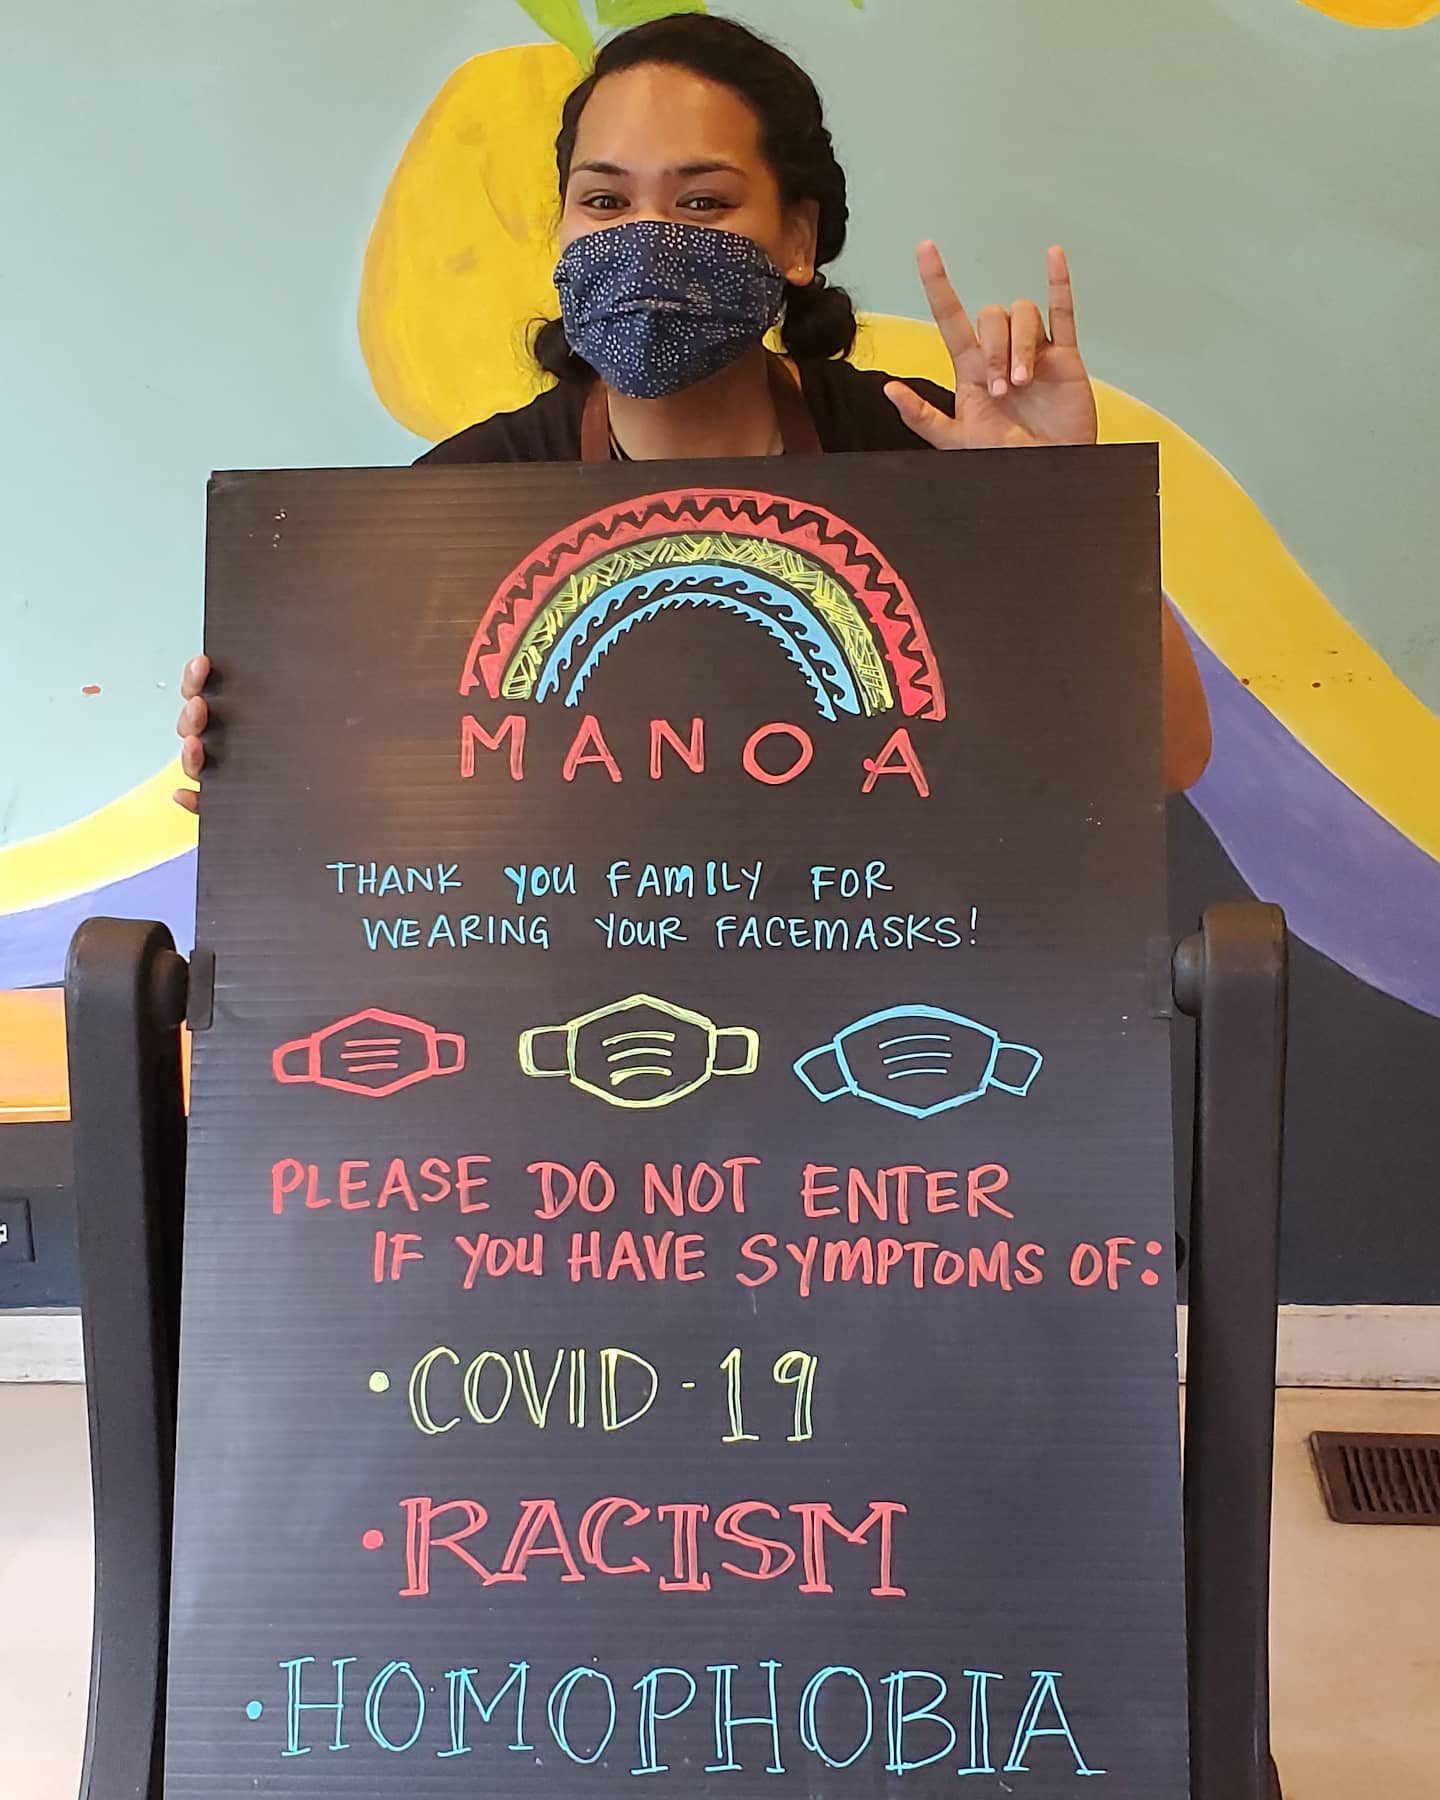 MANOA
THANK YOU FAMILY FOR
WEARING YOUR FACEMASKS!
PLEASE DO NOT ENTER
IF YOU HAVE SYMPTOMS OF:
• COVID-19
• RACISM
• HOMOPHOBIA